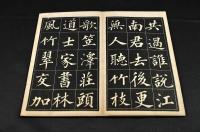 共過誰說江
南君去後更
無人聽竹枝
歌笠澤莊頭
道士家書林
風竹翠交加